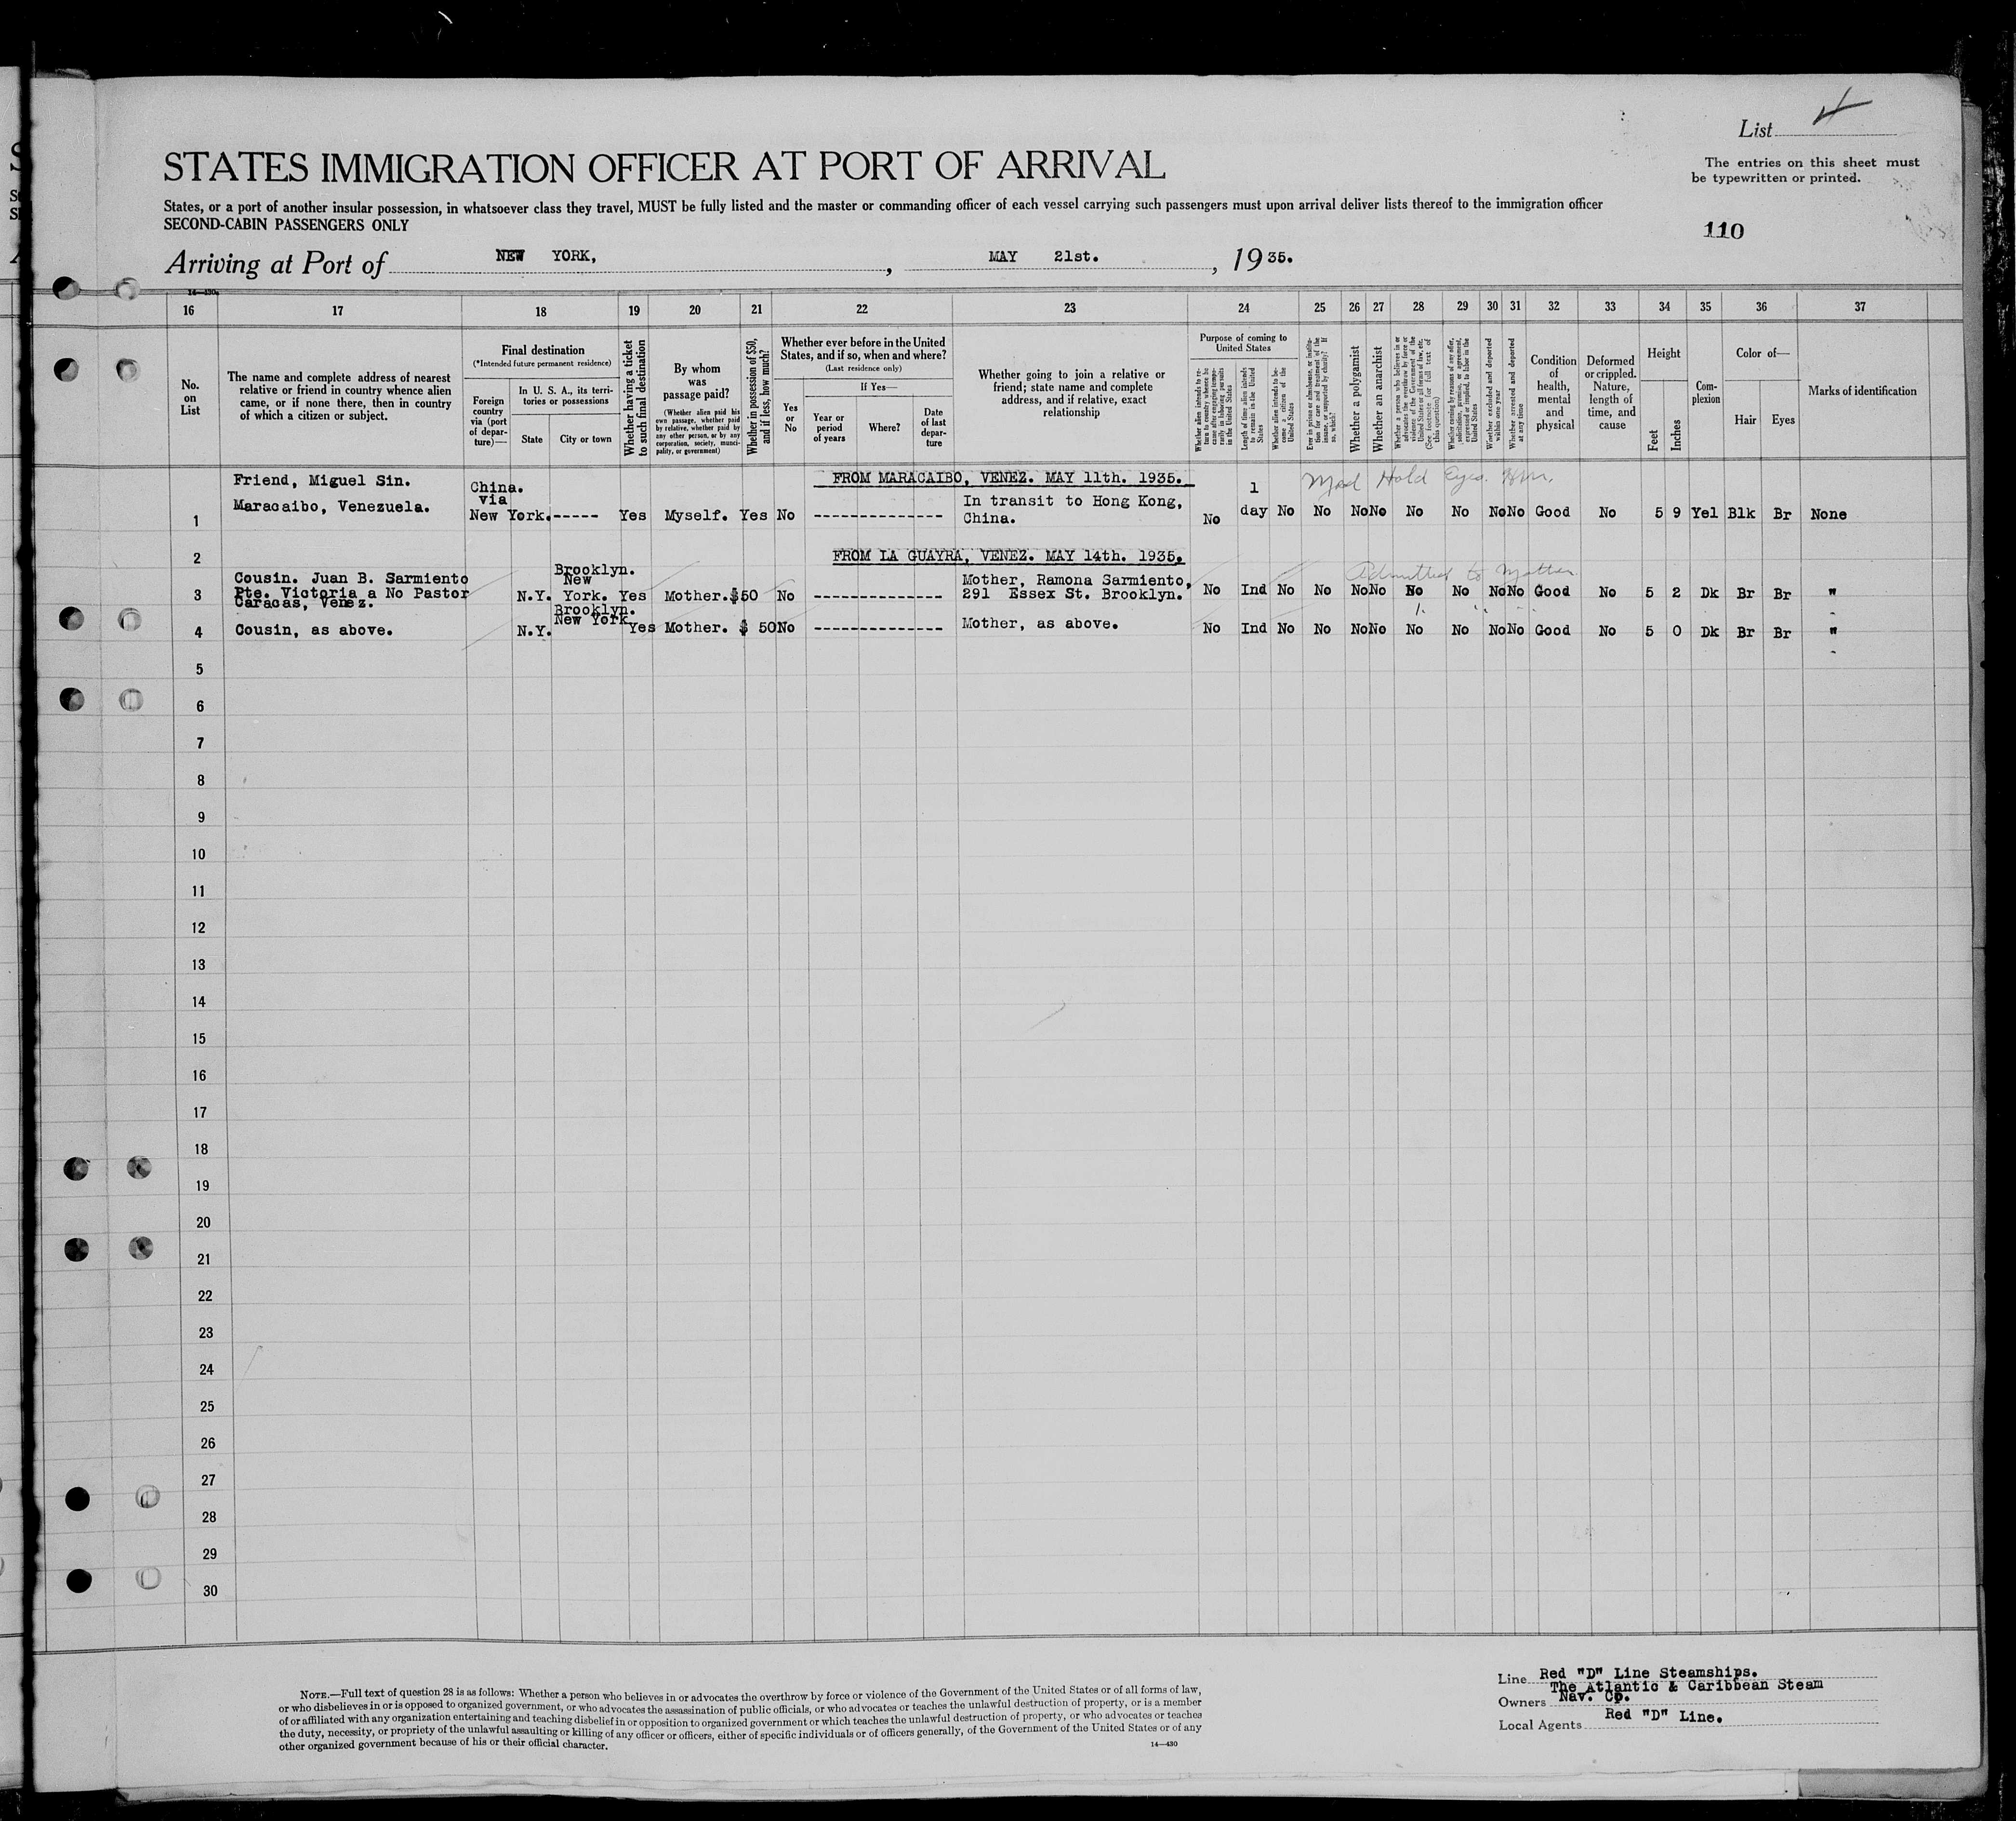 List 4
The entries on this sheet must
be typewritten or printed.
STATES IMMIGRATION OFFICER AT PORT OF ARRIVAL
States, or a port of another insular possession, in whatsoever class they travel, MUST be fully listed and the master or commanding officer of each vessel carrying such passengers must upon arrival deliver lists thereof to the immigration officer
SECOND-CABIN PASSENGERS ONLY
110
Arriving at Port of NEW YORK, , MAY 21st. , 1935.
14-430
16 17 18 19 20 21 22 23 24 25 26 27 28 29 30 31 32 33 34 35 36 37
No.
on
List
The name and complete address of nearest
relative or friend in country whence alien
came, or if none there, then in country
of which a citizen or subject.
Final destination
(*Intended future permanent residence)
Foreign
country
via (port
of depar-
ture)—
In U. S. A., its terri-
tories or possessions
State City or town
Whether having a ticket
to such final destination
By whom
was
passage paid?
(Whether alien paid his
own passage, whether paid
by relative, whether paid by
any other person, or by any
corporation, society, munici-
pality, or government)
Whether in possession of $50,
and if less, how much?
Whether ever before in the United
States, and if so, when and where?
(Last residence only)
Yes
or
No
If Yes—
Year or
period
of years
Where?
Date
of last
depar-
ture
Whether going to join a relative or
friend; state name and complete
address, and if relative, exact
relationship
Purpose of coming to
United States
Whether alien intends to re-
turn to country whence he
came after engaging tempo-
rarily in laboring pursuits
in the United States
Length of time alien intends
to remain in the United
States
Whether alien intends to be-
come a citizen of the
United States
Ever in prison or almshouse, or institu-
tion for care and treatment of the
insane, or supported by charity? If
so, which?
Whether a polygamist
Whether an anarchist
Whether a person who believes in or
advocates the overthrow by force or
violence of the Government of the
United States or all forms of law, etc.
(See footnote for full text of
this question)
Whether coming by reasons of any offer,
solicitation, promise, or agreement,
expressed or implied, to labor in the
United States
Whether excluded and deported
within one year
Whether arrested and deported
at any time
Condition
of
health,
mental
and
physical
Deformed
or crippled.
Nature,
length of
time, and
cause
Height
Feet
Inches
Com-
plexion
Color of—
Hair Eyes
Marks of identification
FROM MARACAIBO, VENEZ. MAY 11th. 1935.
Hold
1 Friend, Miguel Sin.
Maracaibo, Venezuela.
China.
via
New York.----- Yes Myself. Yes No --------------
In transit to Hong Kong,
China.
No 1
day No No No No No No No No Good No 5 9 Yel Blk Br None
2 FROM LA GUAYRA, VENEZ. MAY 14th. 1935.
Admitted to Mother
3 Cousin. Juan B. Sarmiento
Pte. Victoria a No Pastor
Caracas, Venez.
N.Y. Brooklyn.
New
York. Yes Mother. $50 No --------------
Mother, Ramona Sarmiento,
291 Essex St. Brooklyn.
No Ind No No No No No No No No Good No 5 2 Dk Br Br "
4 Cousin, as above.
N.Y. Brooklyn.
New York Yes Mother. $ 50 No --------------
Mother, as above.
No Ind No No No No No No No No Good No 5 0 Dk Br Br "
5
6
7
8
9
10
11
12
13
14
15
16
17
18
19
20
21
22
23
24
25
26
27
28
29
30
NOTE.—Full text of question 28 is as follows: Whether a person who believes in or advocates the overthrow by force or violence of the Government of the United States or of all forms of law,
or who disbelieves in or is opposed to organized government, or who advocates the assassination of public officials, or who advocates or teaches the unlawful destruction of property, or is a member
of or affiliated with any organization entertaining and teaching disbelief in or opposition to organized government or which teaches the unlawful destruction of property, or who advocates or teaches
the duty, necessity, or propriety of the unlawful assaulting or killing of any officer or officers, either of specific individuals or of officers generally, of the Government of the United States or of any
other organized government because of his or their official character.
14—430
Line Red "D" Line Steamships.
Owners The Atlantic & Caribbean Steam
Nav. Co.
Local Agents Red "D" Line.